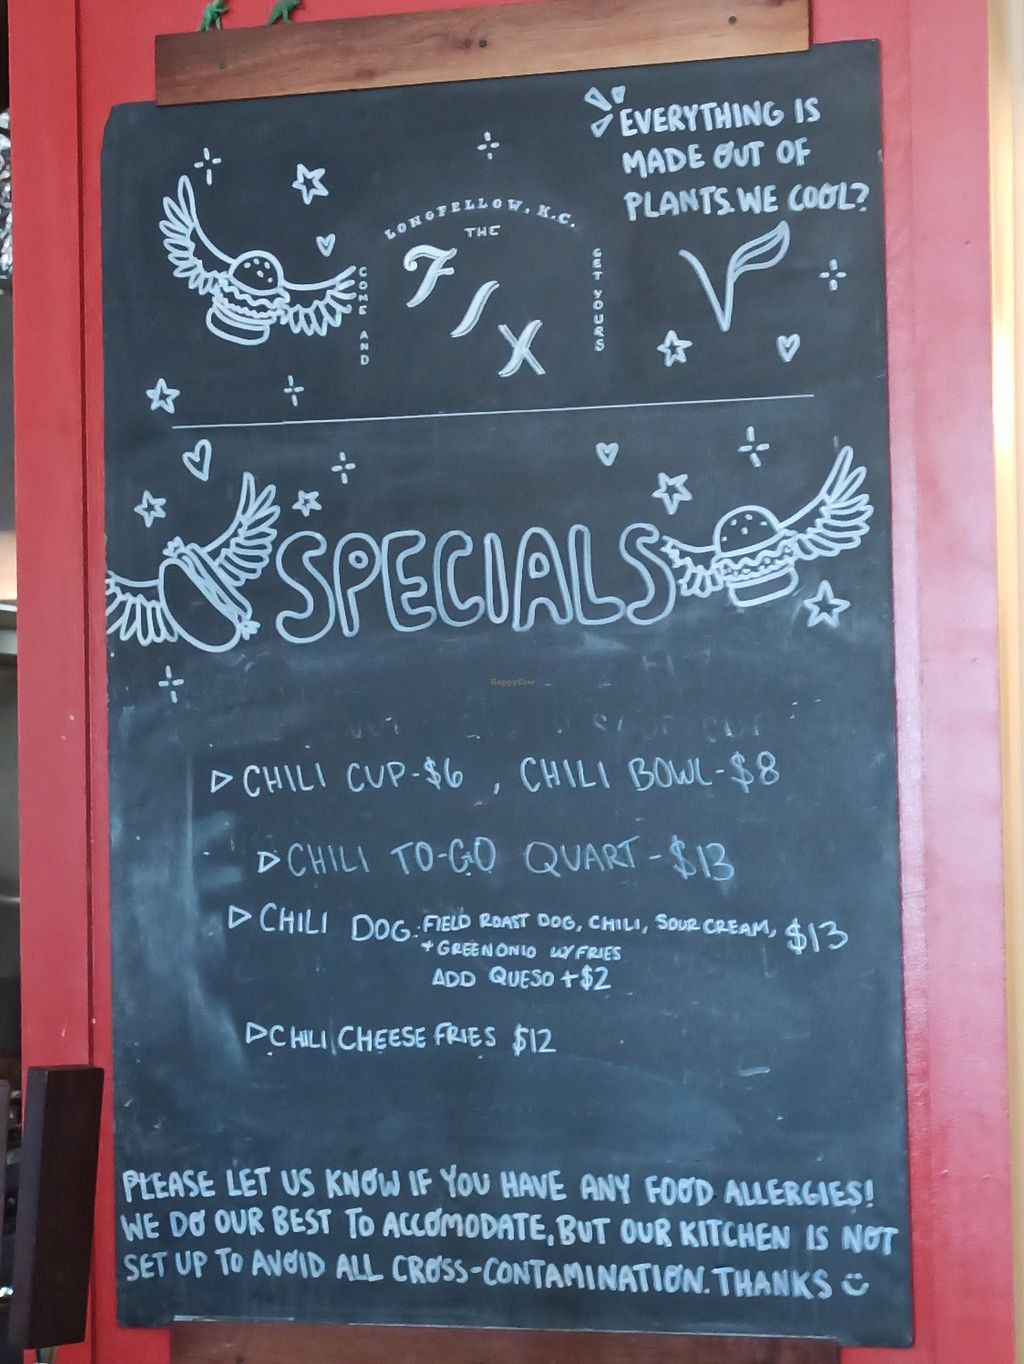 EVERYTHING IS
MADE OUT OF
PLANTS. WE COOL?
LONGFELLOW, K.C.
THE
FIX
COME AND
GET YOURS
SPECIALS
HappyCow
▷ CHILI CUP-$6 , CHILI BOWL-$8
▷ CHILI TO-GO QUART-$13
▷ CHILI DOG: FIELD ROAST DOG, CHILI, SOUR CREAM, $13
+ GREEN ONIO W/ FRIES
ADD QUESO +$2
▷ CHILI CHEESE FRIES $12
PLEASE LET US KNOW IF YOU HAVE ANY FOOD ALLERGIES!
WE DO OUR BEST TO ACCOMODATE, BUT OUR KITCHEN IS NOT
SET UP TO AVOID ALL CROSS-CONTAMINATION. THANKS